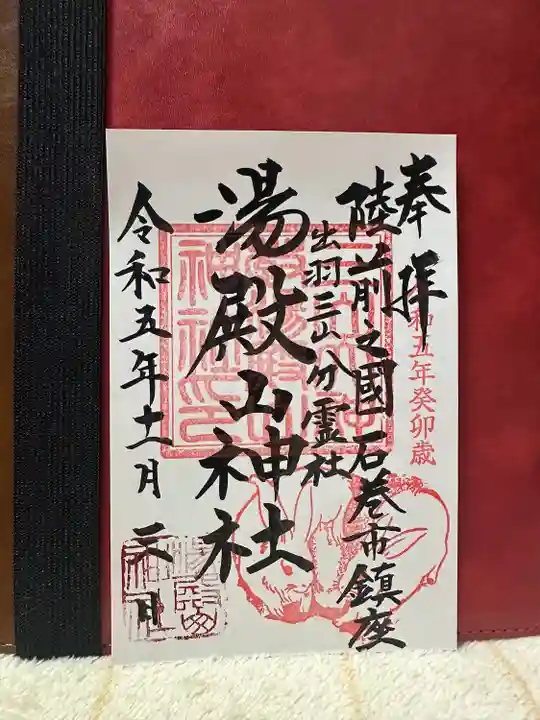 奉拝
陸前之國 石巻市鎮座
出羽三山分霊社
湯殿山神社
令和五年十一月二
和五年癸卯歳